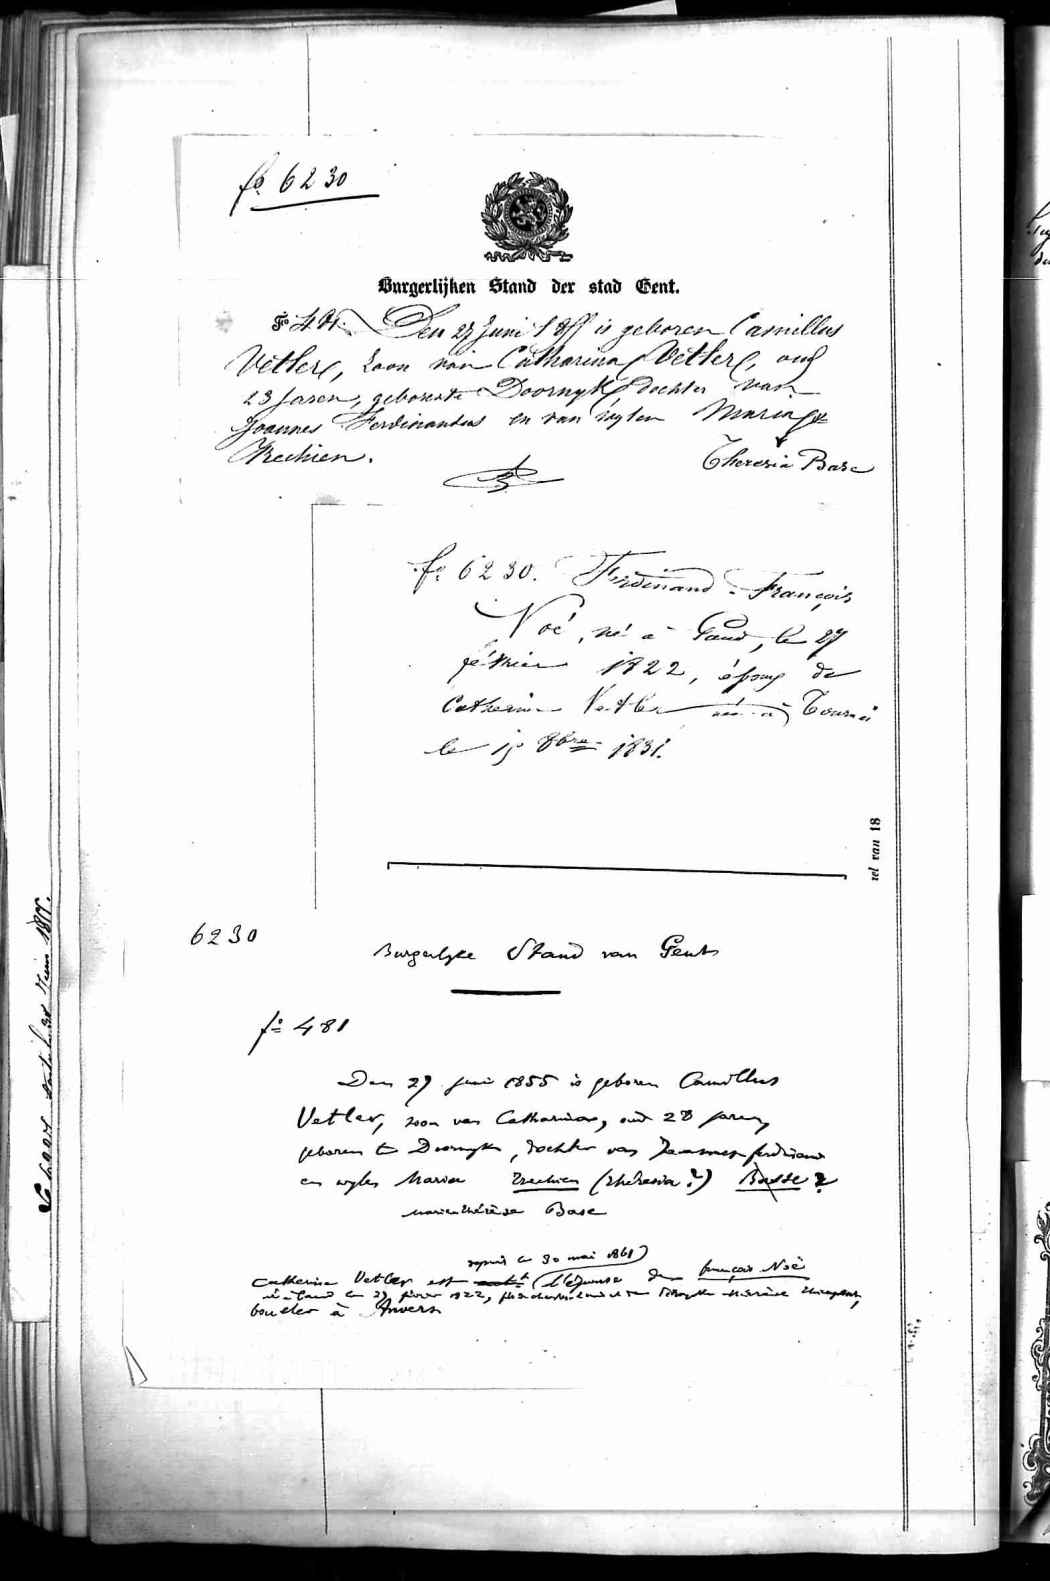 fo 6230
Burgerlijken Stand der stad Gent.
Fo 481. Den 27 Juni 1855 is geboren Camillus
Vetler, zoon van Catharina Vetler, oud
23 Jaren, geboren te Doornyk, dochter van
Joannes Ferdinandus en van wylen Maria
Trechien.
Theresia Base
fo 6230. Ferdinand-François
Noé, né à Gand, le 27
février 1822, époux de
Catherine Vetler née à Tournai
le 8bre 1831.
sel van 18
6230
Burgerlyke Stand van Gent
fo 481
Den 27 juni 1855 is geboren Camillus
Vetler, zoon van Catharina, oud 23 jaren,
geboren te Doornyk, dochter van Joannes ferdinand
en wylen Maria Trechien (theresia?) Basse ?
marie thérèse Base
depuis le 30 mai 1861)
Catherine Vetler est (l'épouse de françois Noé
né à Gand le 27 février 1822,
à Anvers